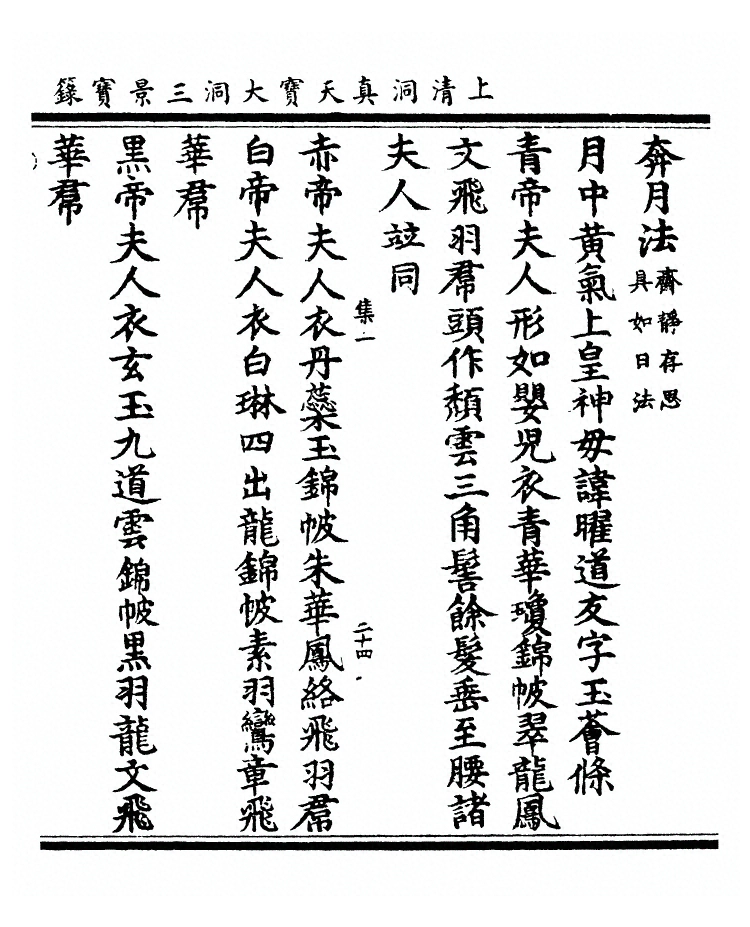 上清洞真天寶大洞三景寶籙
奔月法齋靜存思具如日法
月中黃氣上皇神母諱曜道支字玉薈條
青帝夫人形如嬰兒衣青華瓊錦帔翠龍鳳
文飛羽帬頭作頹雲三角髻餘髮垂至腰諸
夫人竝同
集一
二十四
赤帝夫人衣丹蘂玉錦帔朱華鳳絡飛羽帬
白帝夫人衣白琳四出龍錦帔素羽鸞章飛
華帬
黑帝夫人衣玄玉九道雲錦帔黑羽龍文飛
華帬